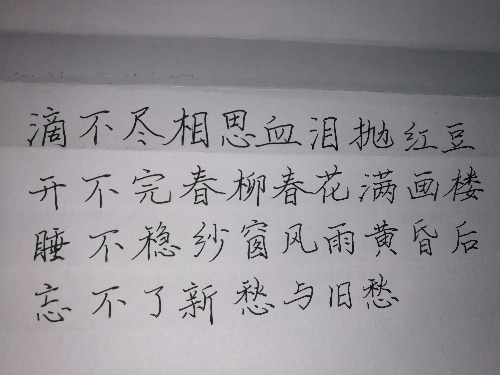 滴不尽相思血泪抛红豆
开不完春柳春花满画楼
睡不稳纱窗风雨黄昏后
忘不了新愁与旧愁